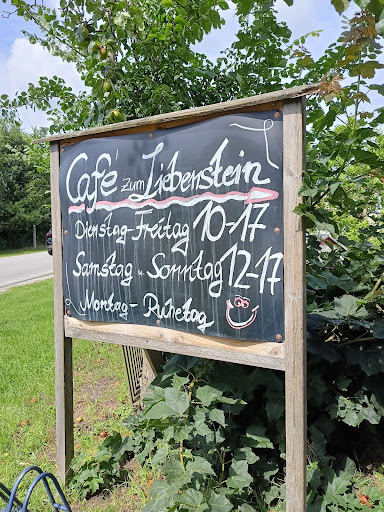 Café zum Liebenstein
Dienstag-Freitag 10-17
Samstag u Sonntag 12-17
Montag- Ruhetag